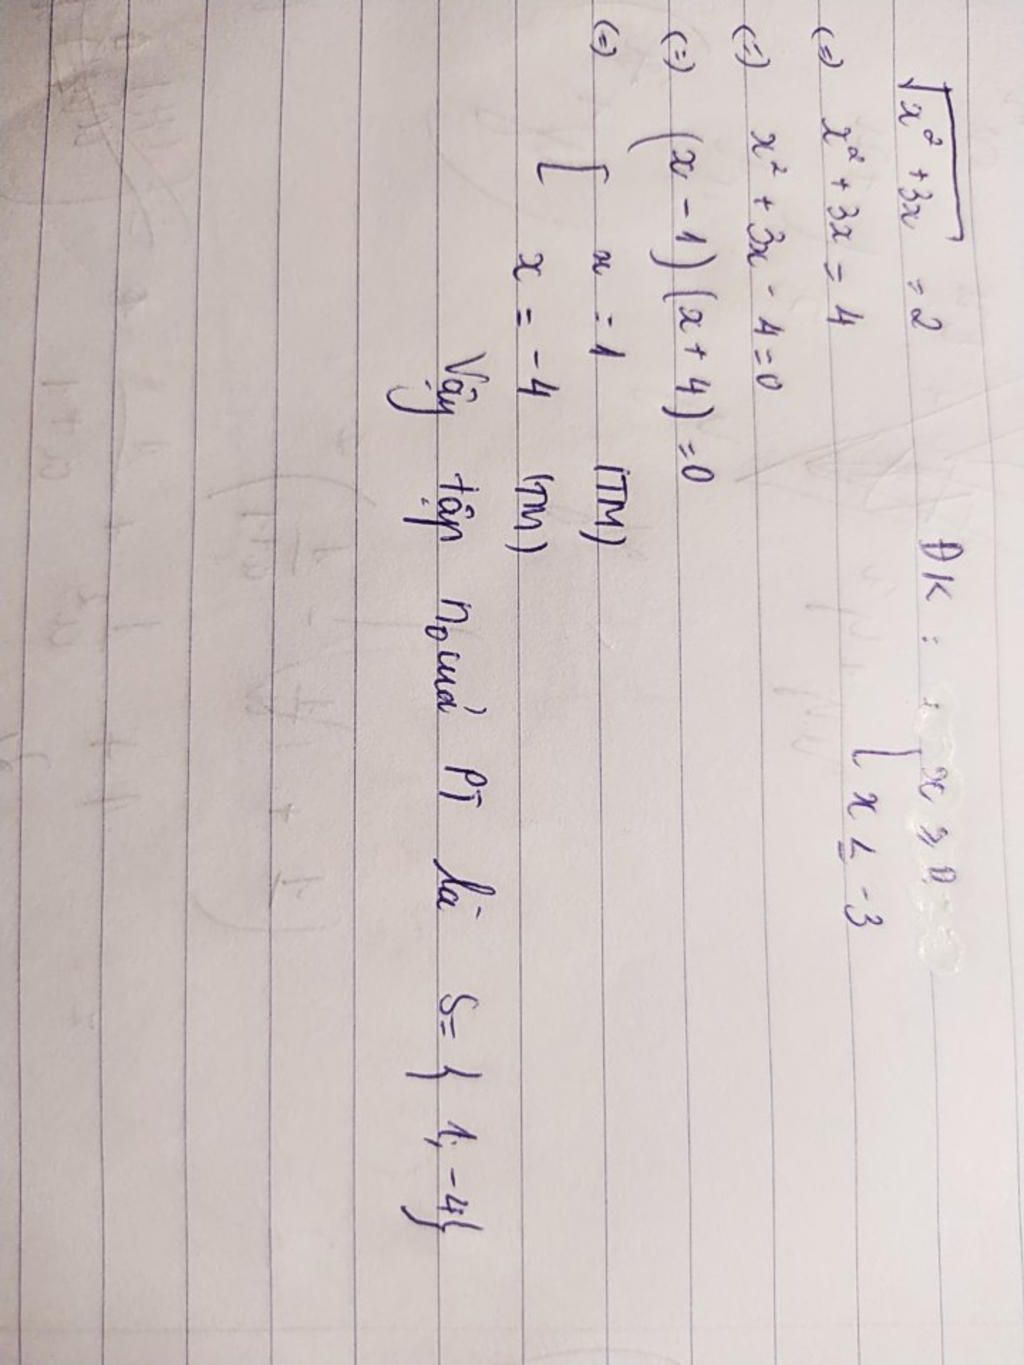 √(x² + 3x) = 2 ĐK : [ x ≥ 0
x ≤ -3
(=) x² + 3x = 4
(=) x² + 3x - 4 = 0
(=) (x - 1)(x + 4) = 0
(=) [ x = 1 (TM)
x = -4 (TM)
Vậy tập n₀ của PT là S = { 1; -4 }